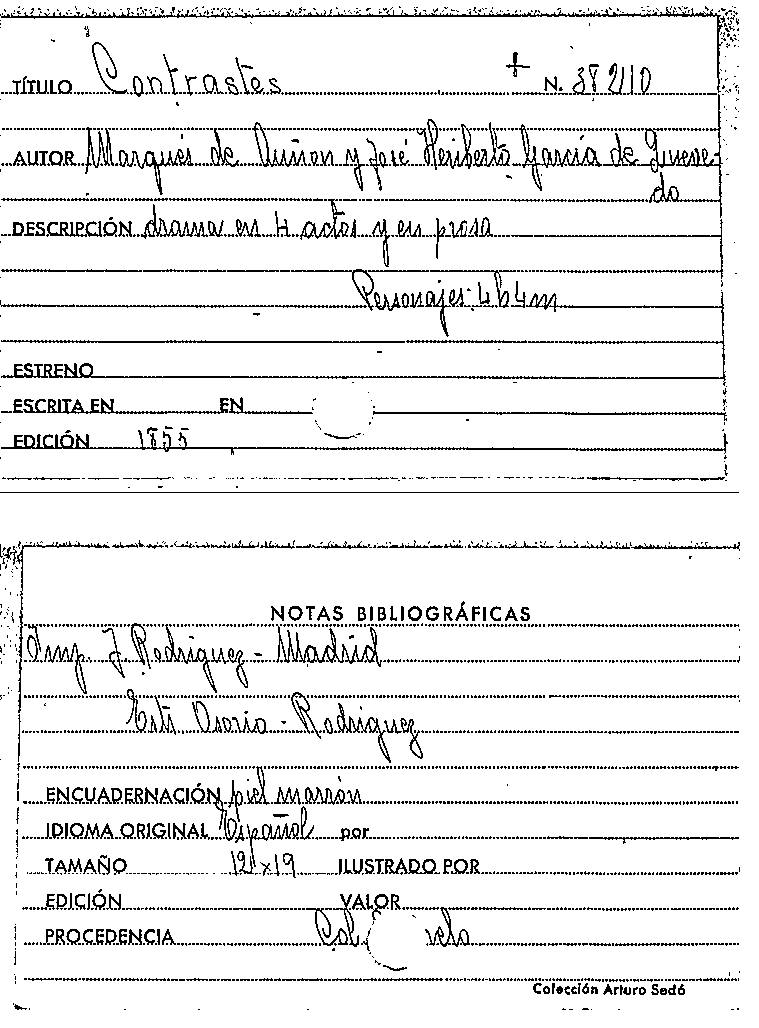 TÍTULO Contrastes + N. 38 210
AUTOR Marqués de Auñon y José Heriberto García de Queve-
do
DESCRIPCIÓN drama en 4 actos y en prosa
Personajes: 4 h 4 m
ESTRENO
ESCRITA EN EN
EDICIÓN 1855
NOTAS BIBLIOGRÁFICAS
Imp. J. Rodriguez - Madrid
Estr. Osorio - Rodriguez
ENCUADERNACIÓN piel marrón
IDIOMA ORIGINAL Español por
TAMAÑO 12 x 19 ILUSTRADO POR
EDICIÓN VALOR
PROCEDENCIA Col.
Colección Arturo Sedó